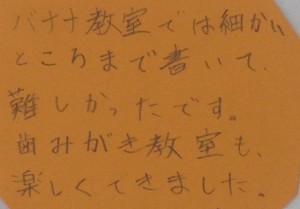 バナナ教室では細かい
ところまで書いて、
難しかったです。
歯みがき教室も、
楽しくてきました。